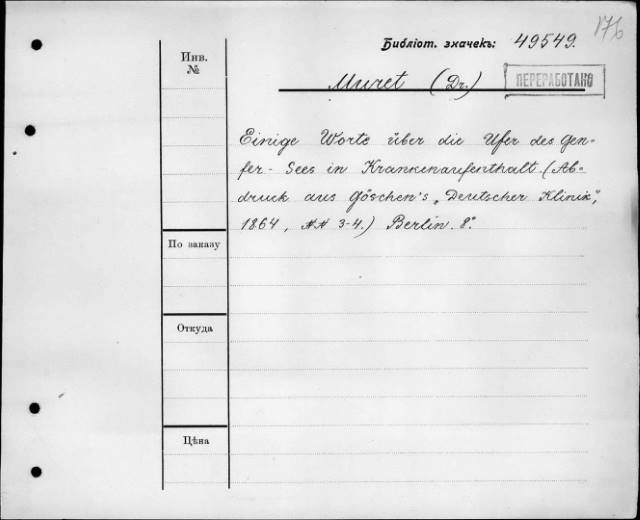 176
Библіот. значекъ: 49549.
Инв.
№
Muret (Dr.)
ПЕРЕРАБОТАНО
Einige Worte über die Ufer des Gen-
fer-Sees in Krankenaufenthalt (Ab-
druck aus Göschen's „Deutscher Klinik",
1864, NN 3-4.) Berlin. 8°.
По заказу
Откуда
Цѣна